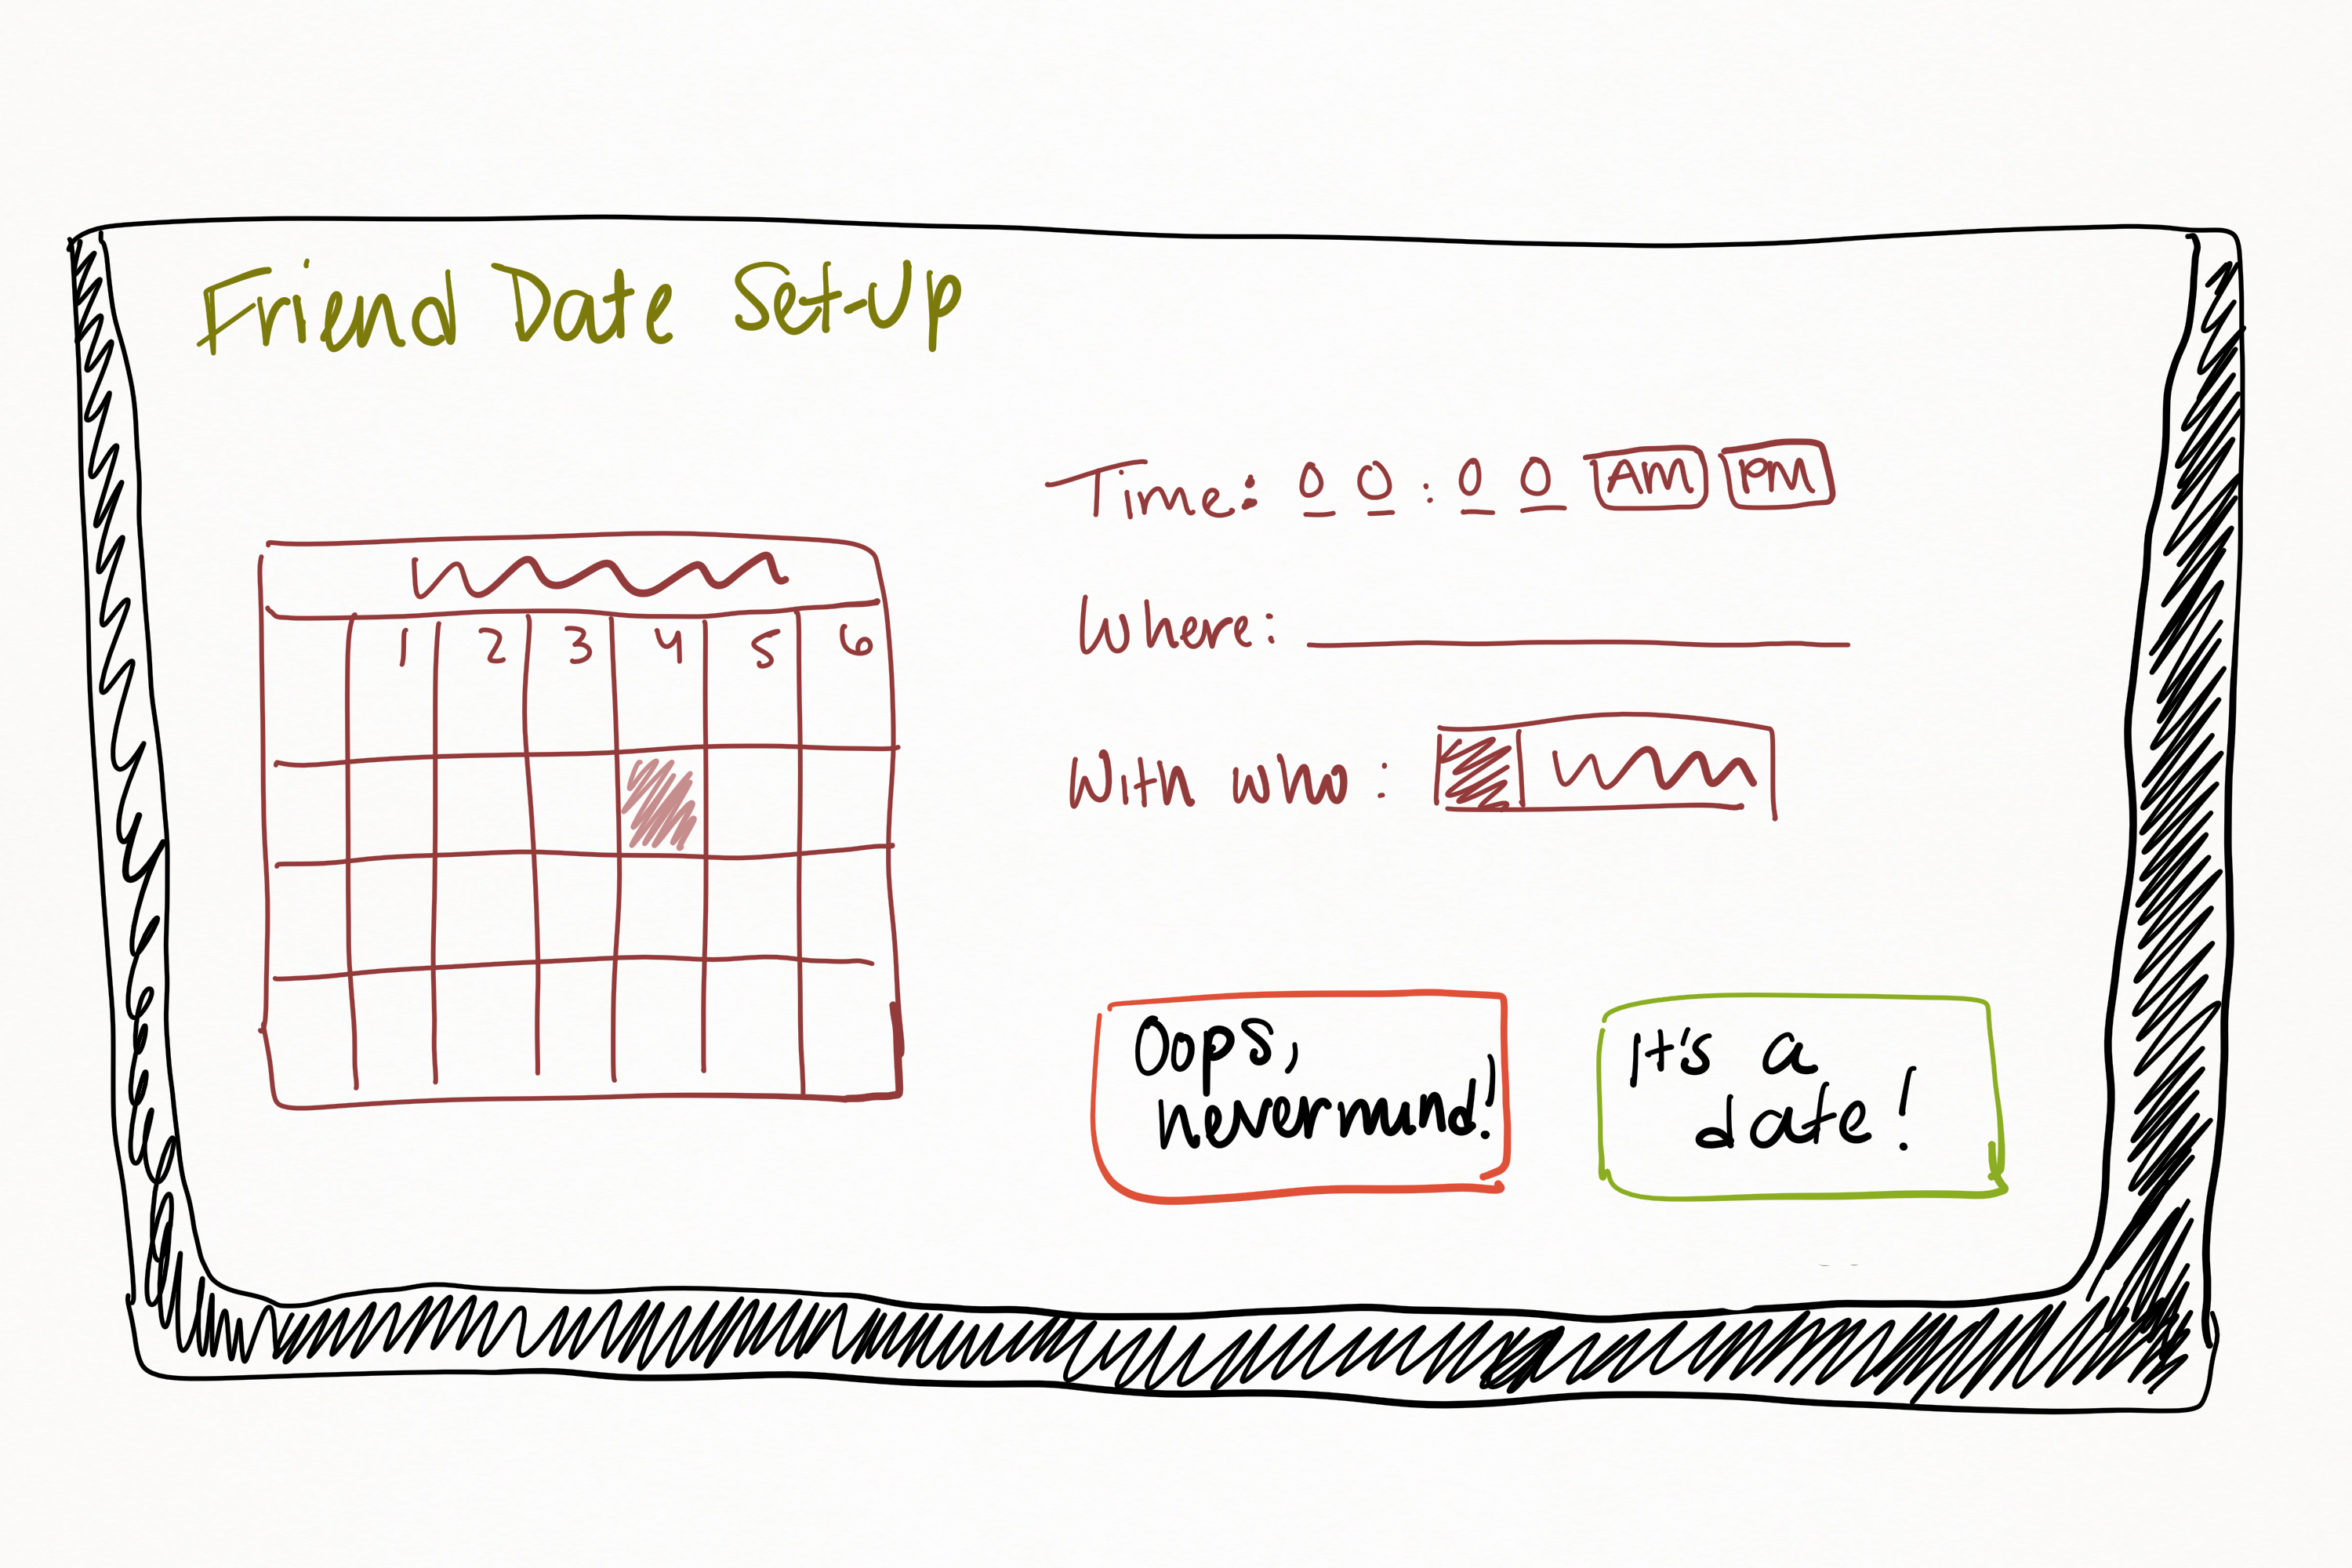 Friend Date Set-Up
Time: 00:00 AM PM
Where:
With who:
1 2 3 4 5 6
Oops,
nevermind!
It's a
date!